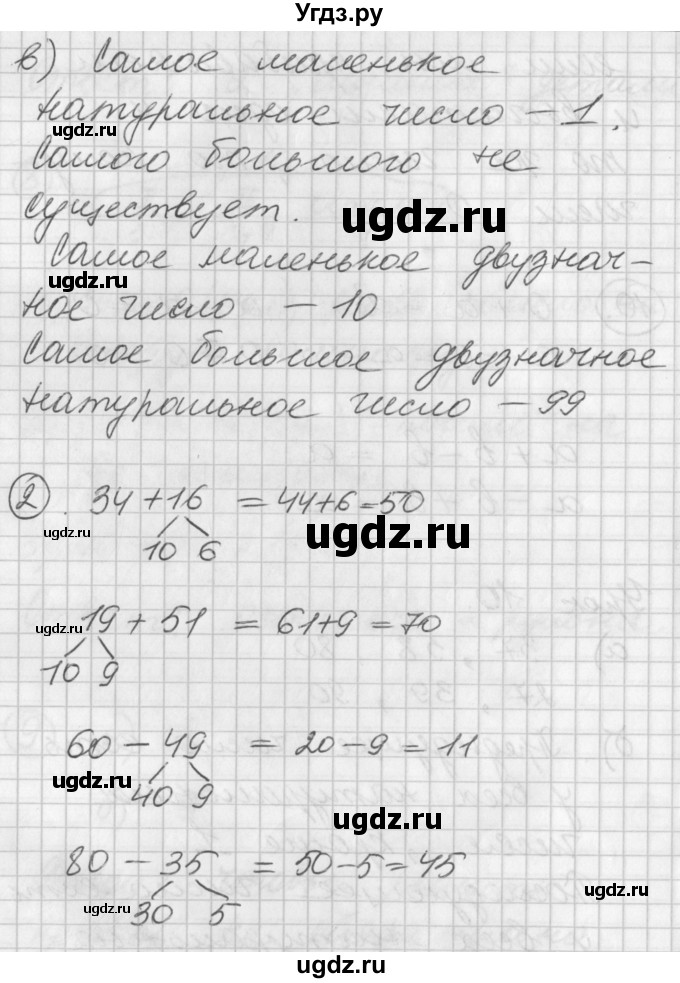 Угдз.ру
в) Самое маленькое
натуральное число – 1.
ugdz.ru
Самого большого не
существует.
ugdz.ru
Самое маленькое двузнач-
ugdz.ru
ное число – 10
Самое большое двузначное
натуральное число – 99
2. 34 + 16 = 44 + 6 = 50
10 6
ugdz.ru
ugdz.ru
19 + 51 = 61 + 9 = 70
ugdz.ru
10 9
60 – 49 = 20 – 9 = 11
ugdz.ru
40 9
ugdz.ru
80 – 35 = 50 – 5 = 45
ugdz.ru
30 5
ugdz.ru
ugdz.ru